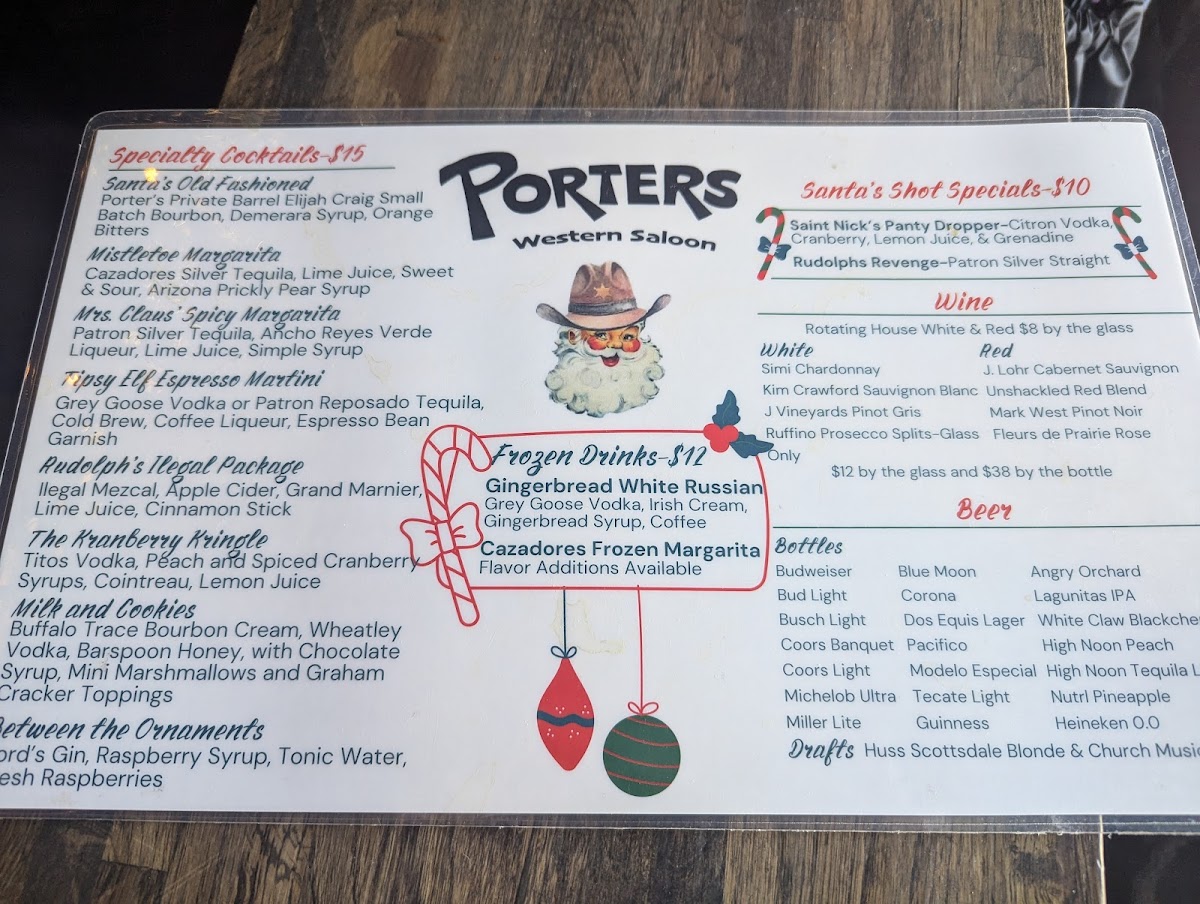 Specialty Cocktails-$15
Santa's Old Fashioned
Porter's Private Barrel Elijah Craig Small
Batch Bourbon, Demerara Syrup, Orange
Bitters
Mistletoe Margarita
Cazadores Silver Tequila, Lime Juice, Sweet
& Sour, Arizona Prickly Pear Syrup
Mrs. Claus' Spicy Margarita
Patron Silver Tequila, Ancho Reyes Verde
Liqueur, Lime Juice, Simple Syrup
Tipsy Elf Espresso Martini
Grey Goose Vodka or Patron Reposado Tequila,
Cold Brew, Coffee Liqueur, Espresso Bean
Garnish
Rudolph's Ilegal Package
Ilegal Mezcal, Apple Cider, Grand Marnier,
Lime Juice, Cinnamon Stick
The Kranberry Kringle
Titos Vodka, Peach and Spiced Cranberry
Syrups, Cointreau, Lemon Juice
Milk and Cookies
Buffalo Trace Bourbon Cream, Wheatley
Vodka, Barspoon Honey, with Chocolate
Syrup, Mini Marshmallows and Graham
Cracker Toppings
Between the Ornaments
ord's Gin, Raspberry Syrup, Tonic Water,
esh Raspberries
PORTERS
Western Saloon
Frozen Drinks-$12
Gingerbread White Russian
Grey Goose Vodka, Irish Cream,
Gingerbread Syrup, Coffee
Cazadores Frozen Margarita
Flavor Additions Available
Santa's Shot Specials-$10
Saint Nick's Panty Dropper-Citron Vodka,
Cranberry, Lemon Juice, & Grenadine
Rudolphs Revenge-Patron Silver Straight
Wine
Rotating House White & Red $8 by the glass
White Red
Simi Chardonnay J. Lohr Cabernet Sauvignon
Kim Crawford Sauvignon Blanc Unshackled Red Blend
J Vineyards Pinot Gris Mark West Pinot Noir
Ruffino Prosecco Splits-Glass Fleurs de Prairie Rose
Only
$12 by the glass and $38 by the bottle
Beer
Bottles
Budweiser Blue Moon Angry Orchard
Bud Light Corona Lagunitas IPA
Busch Light Dos Equis Lager White Claw Blackche
Coors Banquet Pacifico High Noon Peach
Coors Light Modelo Especial High Noon Tequila L
Michelob Ultra Tecate Light Nutrl Pineapple
Miller Lite Guinness Heineken 0.0
Drafts Huss Scottsdale Blonde & Church Musi